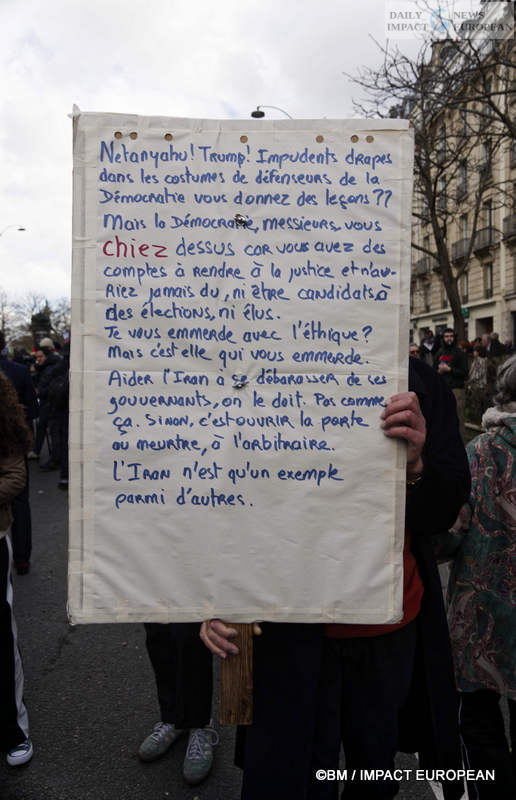 DAILY NEWS
IMPACT EUROPEAN
Netanyahu! Trump! Impudents drapés
dans les costumes de défenseurs de la
Démocratie vous donnez des leçons ??
Mais la Démocratie, messieurs, vous
chiez dessus car vous avez des
comptes à rendre à la justice et n'au-
riez jamais du, ni être candidats à
des élections, ni élus.
Je vous emmerde avec l'éthique ?
Mais c'est elle qui vous emmerde.
Aider l'Iran à se débarasser de ses
gouvernants, on le doit. Pas comme
ça. Sinon, c'est ouvrir la porte
au meurtre, à l'arbitraire.
L'Iran n'est qu'un exemple
parmi d'autres.
©BM / IMPACT EUROPEAN